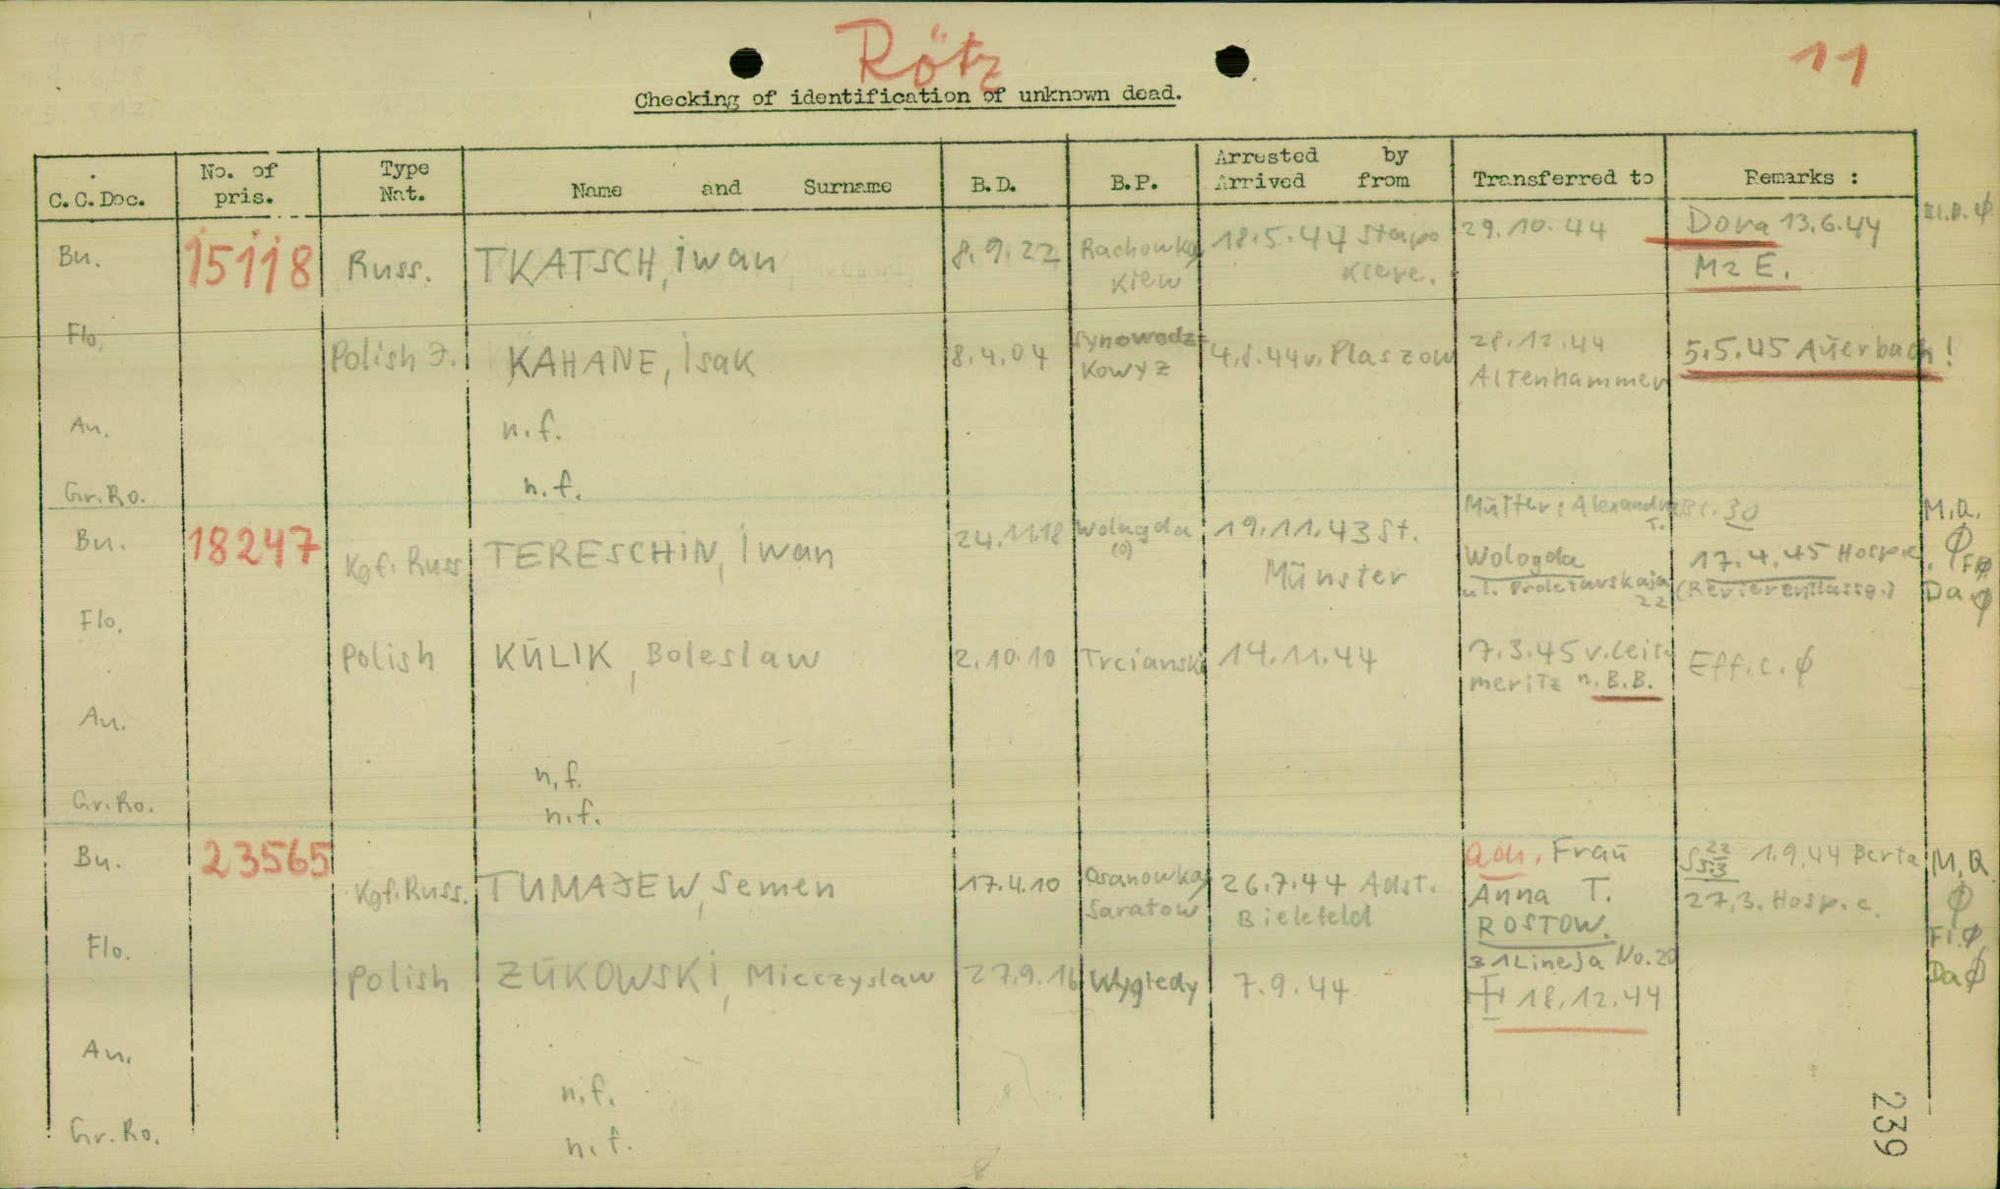 Rötz
11
Checking of identification of unknown dead.
C.C.Doc. No. of pris. Type Nat. Name and Surname B.D. B.P. Arrested by Arrived from Transferred to Remarks :
Bu. 15118 Russ. TKATSCH, Iwan 8.9.22 Rachowka, Kiew 18.5.44 Stapo Kleve. 29.10.44 Dora 13.6.44
M2 E.
Flo. Polish J. KAHANE, Isak 8.4.04 Synowodz- Kowyz 4.8.44 v. Plaszow 28.12.44 Altenhammer 5.5.45 Auerbach!
An. n.f.
Gr.Ro. n.f.
Bu. 18247 Kgf. Russ. TERESCHIN, Iwan 24.11.18 Wologda (0) 19.11.43 St. Münster Mutter: Alexandra T. Bl. 30
Wologda 17.4.45 Hosp.c. (Revierentlassg.)
ul. Proletarskaja 22
M.Q. Ø
Da Ø
Flo. Polish KŪLIK, Boleslaw 2.10.10 Trcianski 14.11.44 7.3.45 v. Leit- meritz n. B.B. Eff.c. Ø
An. n.f.
Gr.Ro. n.f.
Bu. 23565 Kgf. Russ. TUMAJEW, Semen 17.4.10 Osanowka, Saratow 26.7.44 Adst. Bielefeld Adr. Frau 1.9.44 Berta
Anna T. 27.3. Hosp.c.
ROSTOW.
31 Lineja No.20
M.Q.
Ø
Fl.Ø
Da Ø
Flo. Polish ZŪKOWSKI, Mieczyslaw 27.9.16 Wygiedy 7.9.44 18.12.44
An. n.f.
Gr.Ro. n.f.
239